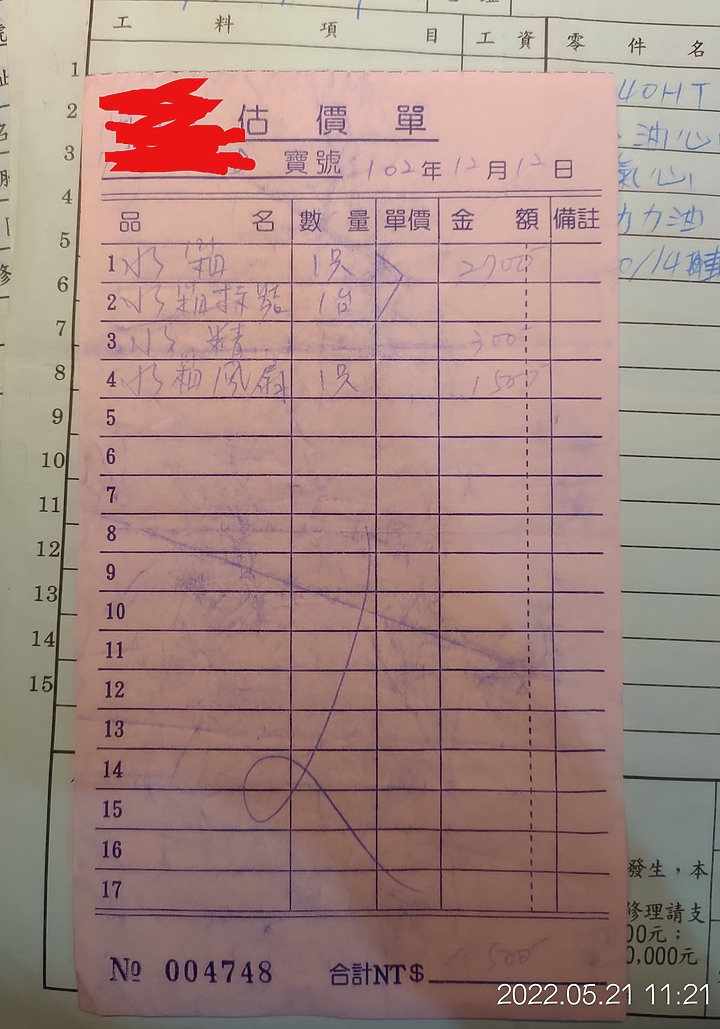 工 料 項 目 工 資 零 件 名
1
2
3
4
5
6
7
8
9
10
11
12
13
14
15
40HT
油心
氣心
力力油
0/14
估價單
寶號 102年12月12日
品名 數量 單價 金額 備註
1 水箱 1只 2700
2 水箱 1台
3 水精 300
4 水箱風扇 1只 1500
5
6
7
8
9
10
11
12
13
14
15
16
17
№ 004748 合計NT$ 500
發生，本
修理請支
00元；
0,000元
2022.05.21 11:21